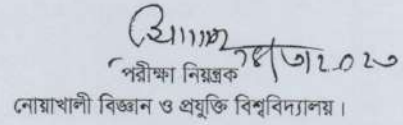 পরীক্ষা নিয়ন্ত্রক
নোয়াখালী বিজ্ঞান ও প্রযুক্তি বিশ্ববিদ্যালয়।